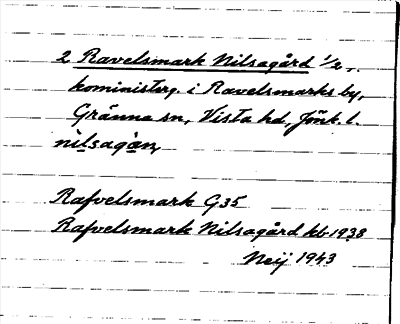 2 Ravelsmark Nilsagård 1/2,
koministerg. i Ravelsmarks by,
Gränna sn, Vista hd, Jönk. l.
nìlsagàn,
Rafvelsmark G35
Rafvelsmark Nilsagård kb 1938
Neij 1943